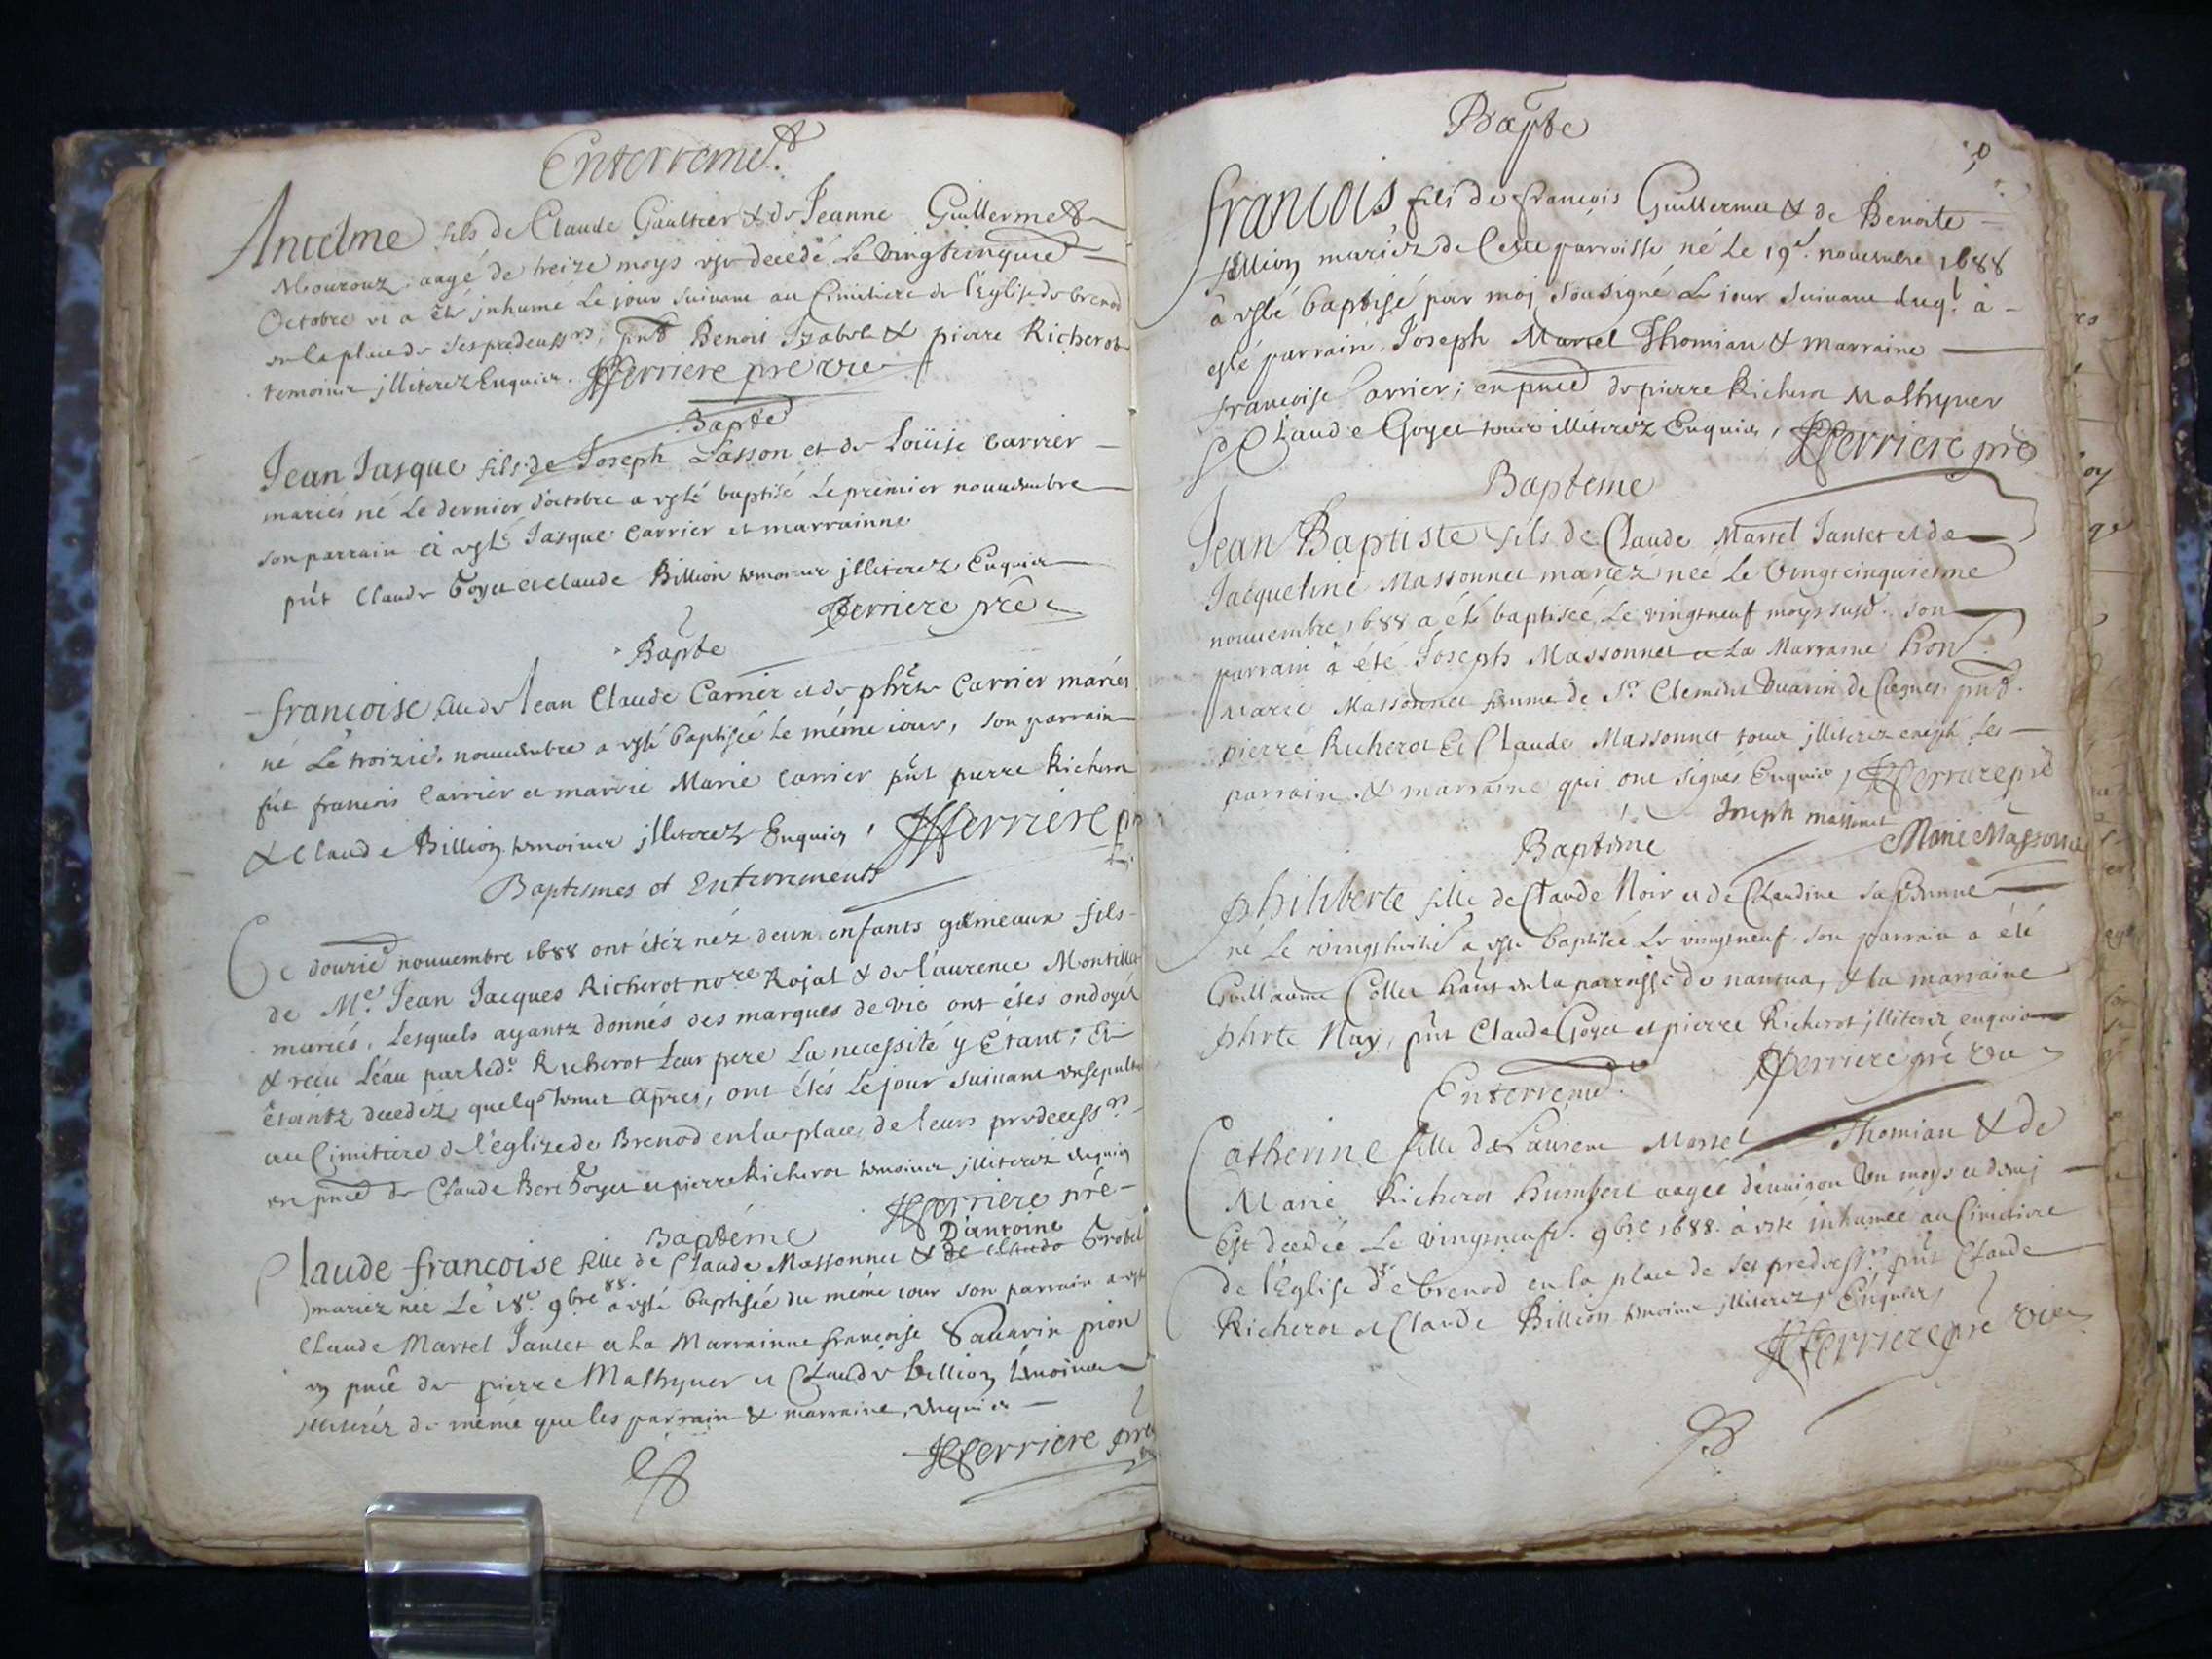 Enterreme.t
Antelme fils de Claude Gaultier & de Jeanne Guillermet
Mourouz, aagé de treize moys est decedé Le vingtcinquie
Octobre et a ête jnhumé Le jour suivant au Cimitiere de l'Eglise de brenod
en la place de ses predecess.rs, Benoit Izabel & pierre Richerot
temoins jlliterez Enquis. Fferriere pre vic
Bapte
Jean Jasque fils de Joseph Lasson et de Loüise Carrier
mariés né Le dernier d'octobre a esté baptisé Le premier nouuembre
son parrain a esté Jasque Carrier et marrainne
pñt Claude Goyet et Claude Billion temoins jlliterez Enquis
Fferriere pre
Bapte
françoise fille de Jean Claude Carrier et de phrte Carrier mariés
né Le troizie. nouuembre a esté baptisée Le même iour, son parrain
fut francois Carrier et marrie Marie Carrier pñt pierre Richerot
& Claude Billion temoins jlliterez Enquis, Fferriere pr
Baptesmes et Enterrements
Ce douzie nouuembre 1688 ont étéz néz deux enfants gemeaux fils
de M.e Jean Jacques Richerot no.re Rojal & de laurence Montillet
mariés, Lesquels ayantz donnés des marques de vie ont étés ondoyés
& reçu L'eau par led.t Richerot Leur pere La necessité y Etant; Et
étantz decedez quelq temps apres, ont étés Le jour suivant ensepultu
au Cimitiere de l'églize de Brenod en la place de leurs predecess.rs
en pnce de Claude Goyet et pierre Richerot temoins jlliterez enquis
Fferriere pre
Baptéme
D'antoine
Claude françoise fille de Claude Massonnet & de Claude Grobel
mariez née Le 18.e 9.bre 88. a esté baptisée du même iour son parrain a esté
Claude Martel Jantet et La Marrainne françoise Sauarin pion
en pnce de pierre Mathyuer et Claude billion témoins
jlliteréz de même que les parrain & marraine, enquis
Fferriere pre
Bapte
françois fils de françois Guillermet & de Benoite
billion mariéz de Cette parroisse né Le 19.e nouembre 1688
a esté baptisé par moj Sousigné Le iour Suivant duq.l à
esté parrain Joseph Martel Thomian & marraine
françoise Carrier; en pnce de pierre Richerot Mathyuer
& Claude Goyet tous illiterez Enquis, Fferriere pre
Bapteme
Jean Baptiste fils de Claude Martel Jantet et de
Jacqueline Massonnet mariéz néé Le Vingtcinquiesme
nouuembre 1688 a été baptisée Le vingtneuf moys susd. son
parrain à été Joseph Massonnet et La Marraine hon.
Marie Massonnet femme de S.r Clement Duarin de pnt.
pierre Richerot Et Claude Massonnet tous jlliterez excepté Les
parrain & marraine qui ont signés Enquis, Fferriere pre
Joseph massonet
Marie Massonnet
Baptéme
philiberte fille de Claude Noir et de Claudine sa femme
né Le vingthuitie a esté baptisée Le vingtneuf son parrain a été
Guillaume Collet haut en la parroisse de nantua, & la marraine
phrte Nay, pñt Claude Goyet et pierre Richerot jlliterez enquis
Fferriere pre vic
Enterreme.t
Catherine fille de Laurent Martel Thomian & de
Marie Richerot humbert aagée d'enuiron Un moys et demj
Est decedée Le vingtneufe. 9bre 1688. à esté inhumée au Cimitiere
de l'Eglise de brenod en la place de ses predecess.rs pñt Claude
Richerot et Claude Billion temoins jlliterez, Enquis,
Fferriere pre vic